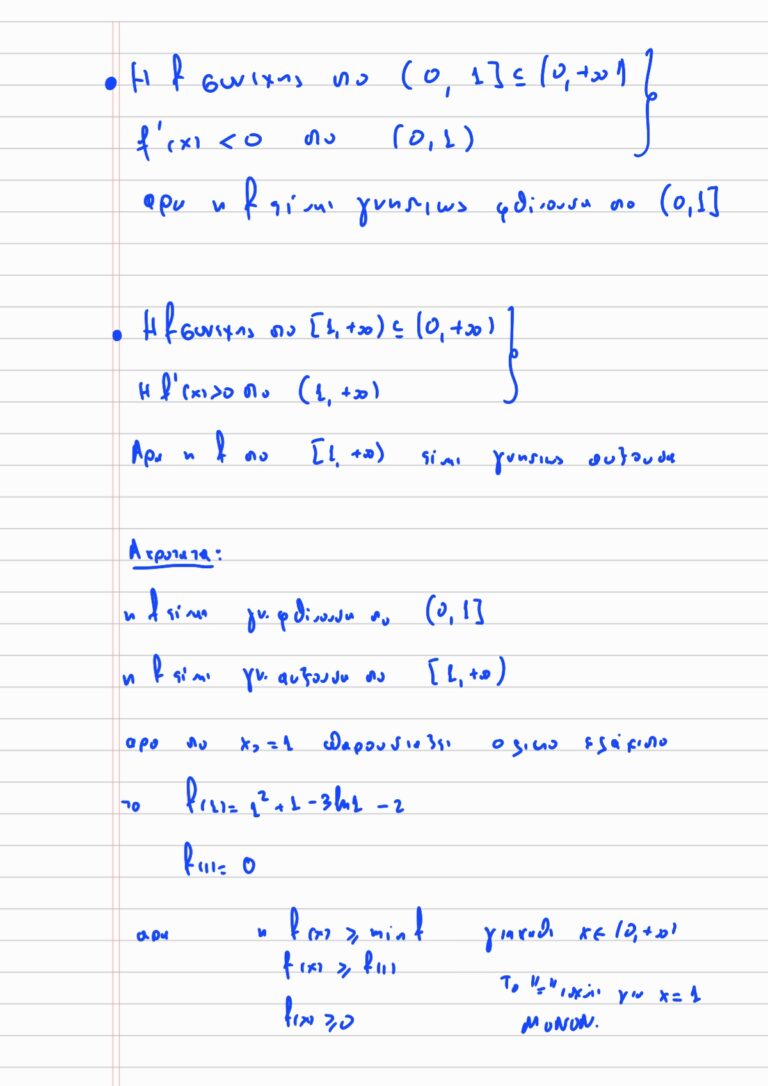 • Η f συνεχης στο (0, 1] ⊆ (0, +∞)
f'(x) < 0 στο (0, 1)
αρα η f ειναι γνησιως φθινουσα στο (0, 1]
• Η f συνεχης στο [1, +∞) ⊆ (0, +∞)
Η f'(x) > 0 στο (1, +∞)
Αρα η f στο [1, +∞) ειναι γνησιως αυξουσα
Ακροτατα:
η f ειναι γν. φθινουσα στο (0, 1]
η f ειναι γν. αυξουσα στο [1, +∞)
αρα στο x₀ = 1 παρουσιαζει ολικο ελάχιστο
το f(1) = 1² + 1 - 3ln1 - 2
f(1) = 0
αρα η f(x) ≥ min f για καθε x ∈ (0, +∞)
f(x) ≥ f(1)
Το "=" ισχυει για x = 1
f(x) ≥ 0
ΜΟΝΟΝ.